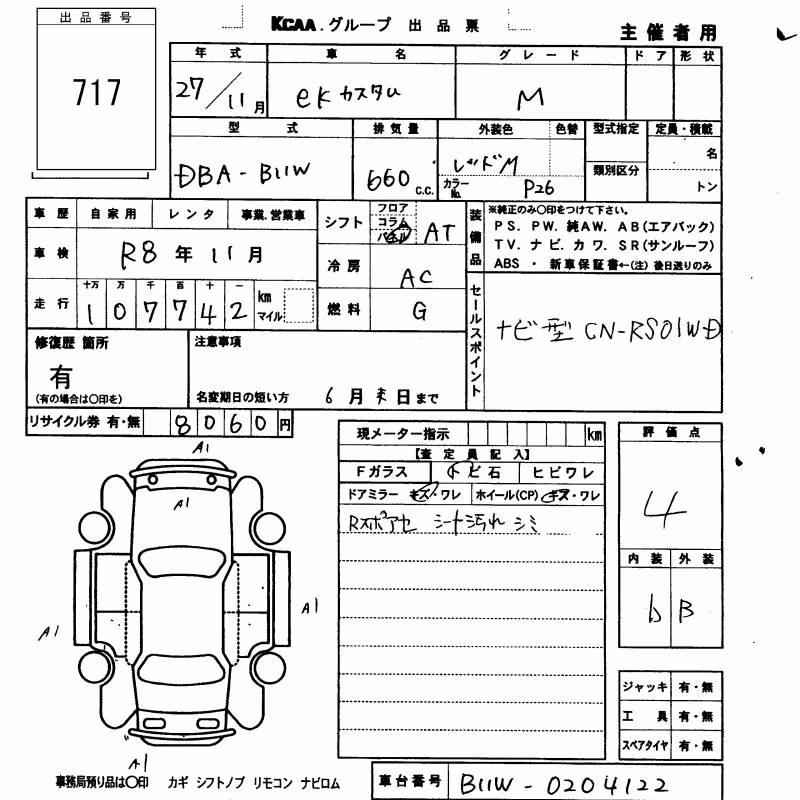 出品番号
717
KCAA.グループ 出品票
主催者用
年式 車名 グレード ドア 形状
27/11月 eKカスタム M
型式 排気量 外装色 色替 型式指定 定員・積載
DBA-B11W 660 c.c. レッドM カラーNo. P26 類別区分 名 トン
車歴 自家用 レンタ 事業.営業車
車検 R8年11月
走行 十万 万 千 百 十 一
107742 km マイル
シフト フロア コラム パネル AT
冷房 AC
燃料 G
装備品
※純正のみ〇印をつけて下さい。
PS. PW. 純AW. AB(エアバック)
TV. ナビ. カワ. SR(サンルーフ)
ABS ・ 新車保証書←(注) 後日送りのみ
セールスポイント
ナビ型 CN-RS01WD
修復歴 箇所
有
(有の場合は〇印を)
注意事項
名変期日の短い方 6月末日まで
リサイクル券 有・無 8060円
現メーター指示 km
【査定員記入】
Fガラス トビ石 ヒビワレ
ドアミラー キズ・ワレ ホイール(CP) キズ・ワレ
Rスポアセ シート汚れ シミ
評価点
4
内装 外装
b B
A1
A1
A1
A1
A1
ジャッキ 有・無
工具 有・無
スペアタイヤ 有・無
事務局預り品は〇印 カギ シフトノブ リモコン ナビロム
車台番号 B11W-0204122